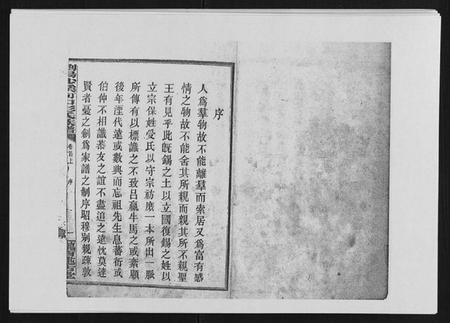 序
人為羣物故不能離羣而索居又為富有感
情之物故不能舍其所親而親其所不親聖
王有見乎此既錫之土以立國復錫之姓以
立宗保姓受氏以守宗祊庶一本所出一脈
所傳有以標識之不致呂嬴牛馬之或紊顧
後年湮代遠或數典而忘祖先生息蕃衍或
伯仲不相識恭友之誼不盡追之遠忱莫達
賢者憂之創為家譜之制序昭穆別親疎敦
卷首上
序